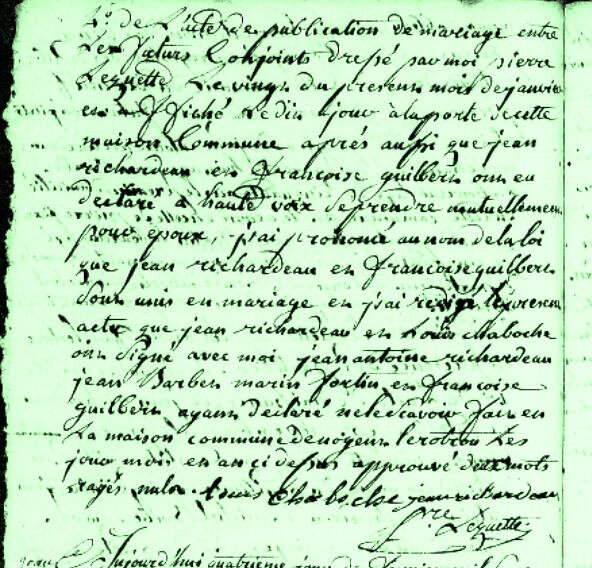 4° de l'acte de publication de mariage entre
les futurs Conjoints dressé par moi pierre
Lequette Le vingt du present mois de janvier
et affiché Ledit jour à la porte de cette
maison Commune aprés aussi que jean
richardeau et francoise guilbert ont eu
declaré à haute voix se prendre mutuellement
pour epoux, j'ai prononcé au nom de la loi
que jean richardeau et francoise guilbert
sont unis en mariage et j'ai redigé le present
acte que jean richardeau et Louis chaboche
ont signé avec moi jean antoine richardeau
jean Barbet marin fortin et françoise
guilbert ayant declaré ne le scavoir fait en
La maison commune de nogent le rotrou les
jour mois et an ci dessus approuvé deux mots
rayés nuls Louis Chaboche jean richardeau
Pre Lequette
Aujourd'hui quatrieme jour de